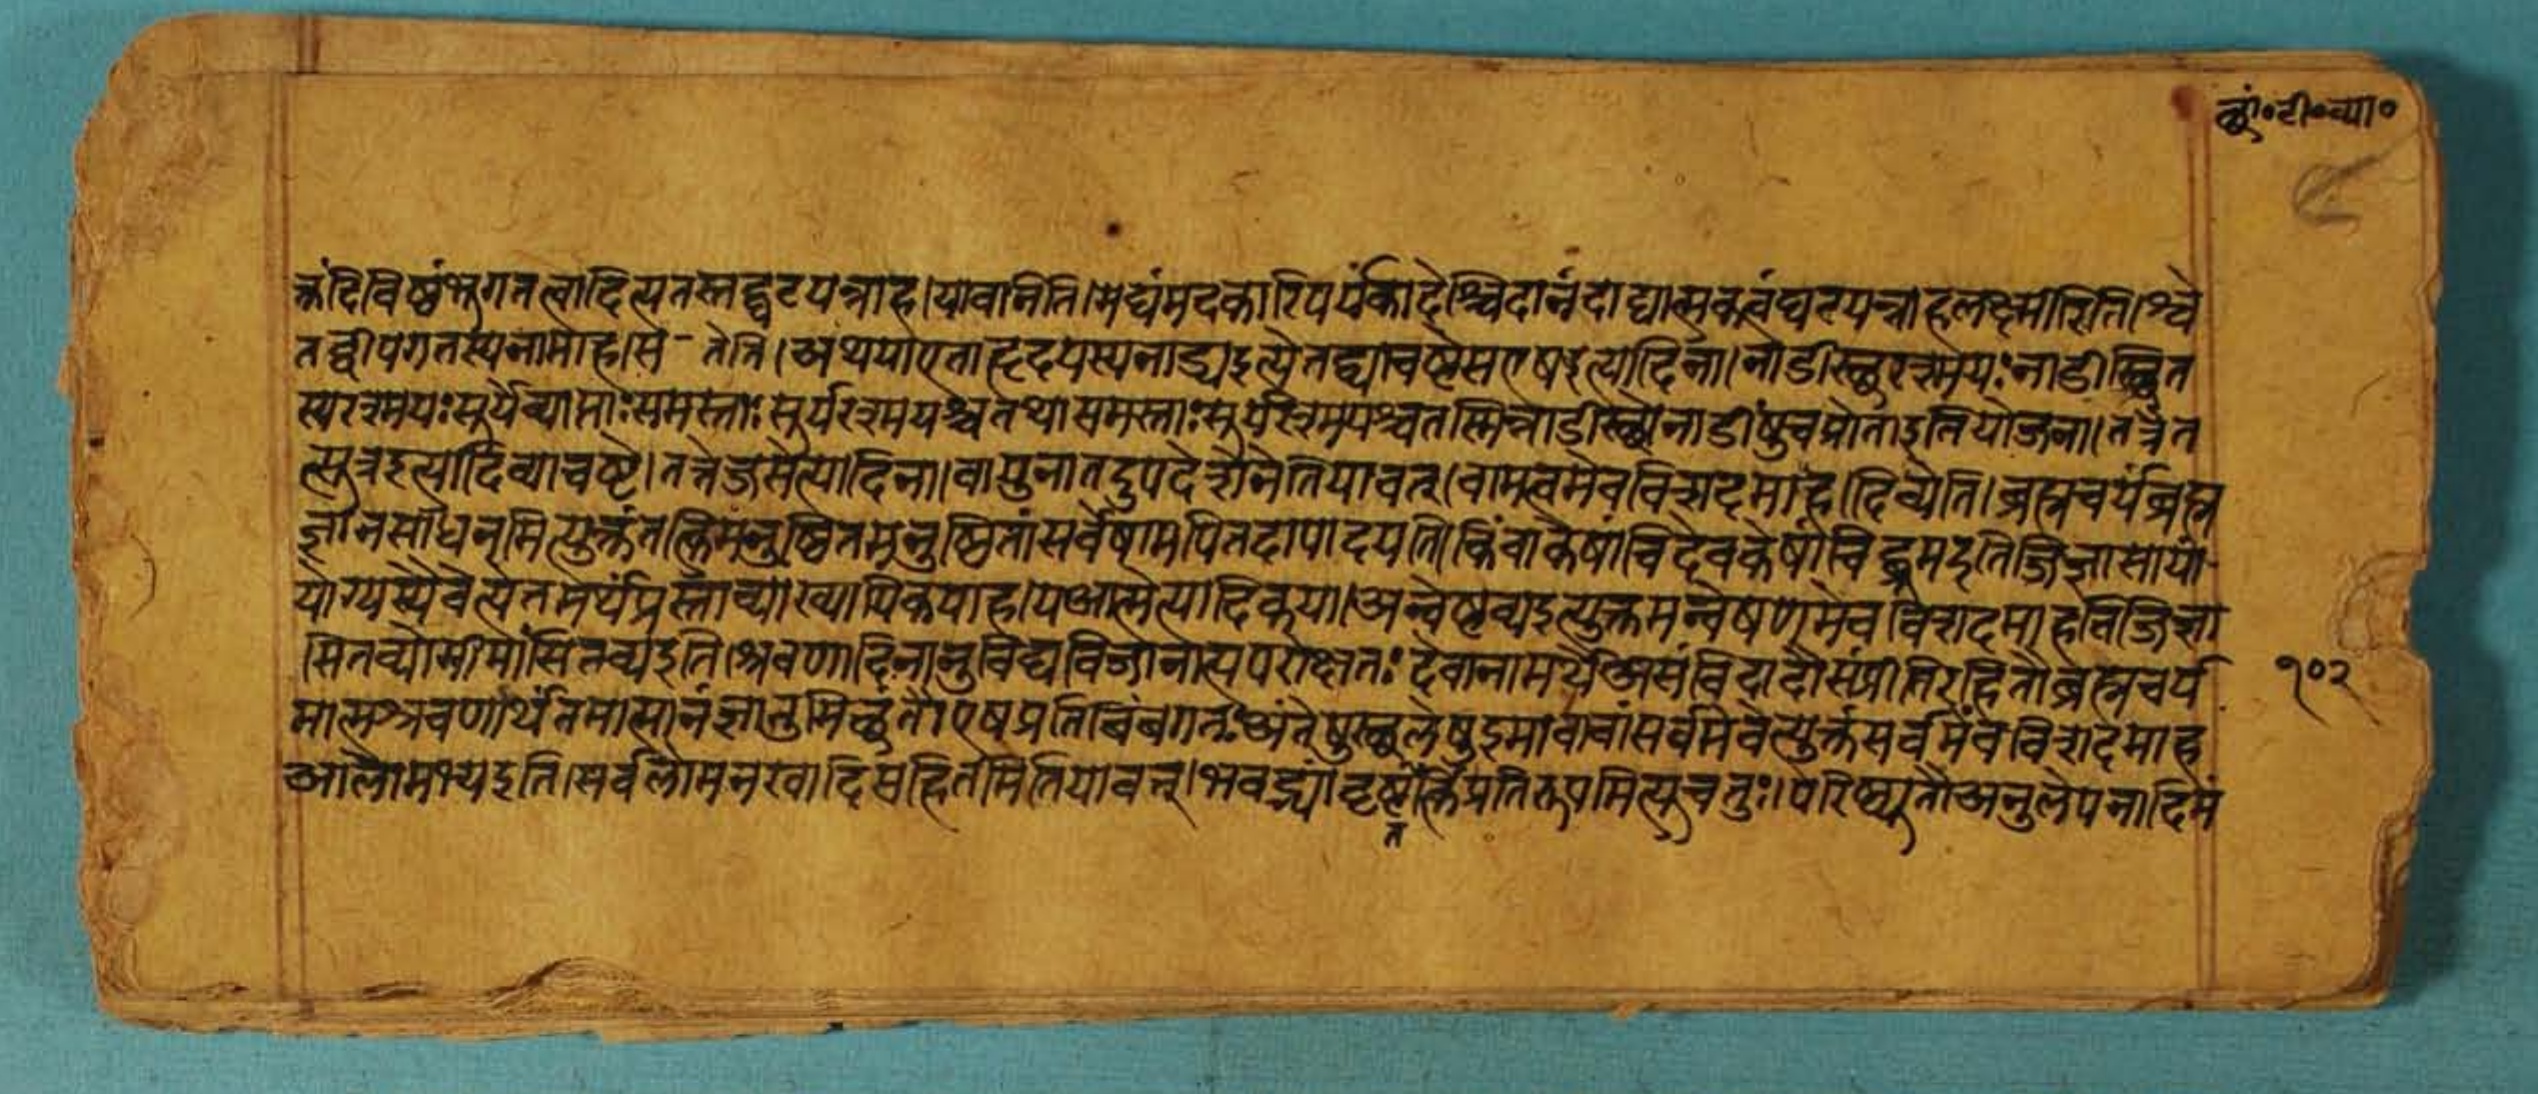 छां०टी०व्या०
क्तंदिविष्ठंभगतत्वादित्यतस्तद्घटयन्नाह।यावानिति।मद्यंमदकारिपर्यंकादेश्चिदानंदाद्यात्मकत्वंघटयन्नाहलक्ष्मीरिति।श्वे
तद्वीपगतस्यनामाह।स - तेति।अथयाएताहृदयस्यनाड्यइत्येतद्व्याचष्टेसएषइत्यादिना।नाडीस्छरश्मयःनाडीस्थित
स्यरश्मयःसूर्येव्याप्ताःसमस्ताःसूर्यरश्मयश्चतथासमस्ताःसूर्यरश्मयश्चतस्मिन्नाडीस्छेनाडीषुचप्रोताइतियोजना।तत्रैत
त्सुत्रइत्यादिव्याचष्टे।तत्तेजसेत्यादिना।वायुनातदुपदेशेनेतियावत्।वामत्वमेवविशदमाह।दिव्येति।ब्रह्मचर्यंब्रह्म
ज्ञानसाधनमित्युक्तंतत्किमनुष्ठितमनुष्ठितांसर्वेषामपितदापादयति।किंवाकेषांचिदेवकेषांचिद्धूमदृतिजिज्ञासायां
योग्यस्यैवेत्येतमर्थंप्रस्ताव्याख्यायिकयाह।यआत्मेत्यादिकया।अन्वेष्टव्यइत्युक्तमन्वेषणमेवविशदमाहविजिज्ञा
सितव्योमीमांसितव्यइति।श्रवणादिनानुविद्यविजानात्यपरोक्षतःदेवानामर्थेअसंविदादौसंप्रीतिरहितौब्रह्मचर्य
मात्मश्रवणार्थंतमात्मानंज्ञातुमिच्छंतौएषप्रतिबिंबगतःअंतेषुस्छलेषुइमावावांसर्वमेवेत्युक्तंसर्वमेवविशदमाह
आलोमभ्यइति।सर्वलोमनखादिसहितमितियावत्।भवद्भ्यांदृष्टंतत्किंप्रतिरूपमित्यूचतुः।परिष्कृतौअनुलेपनादिमं
१०२